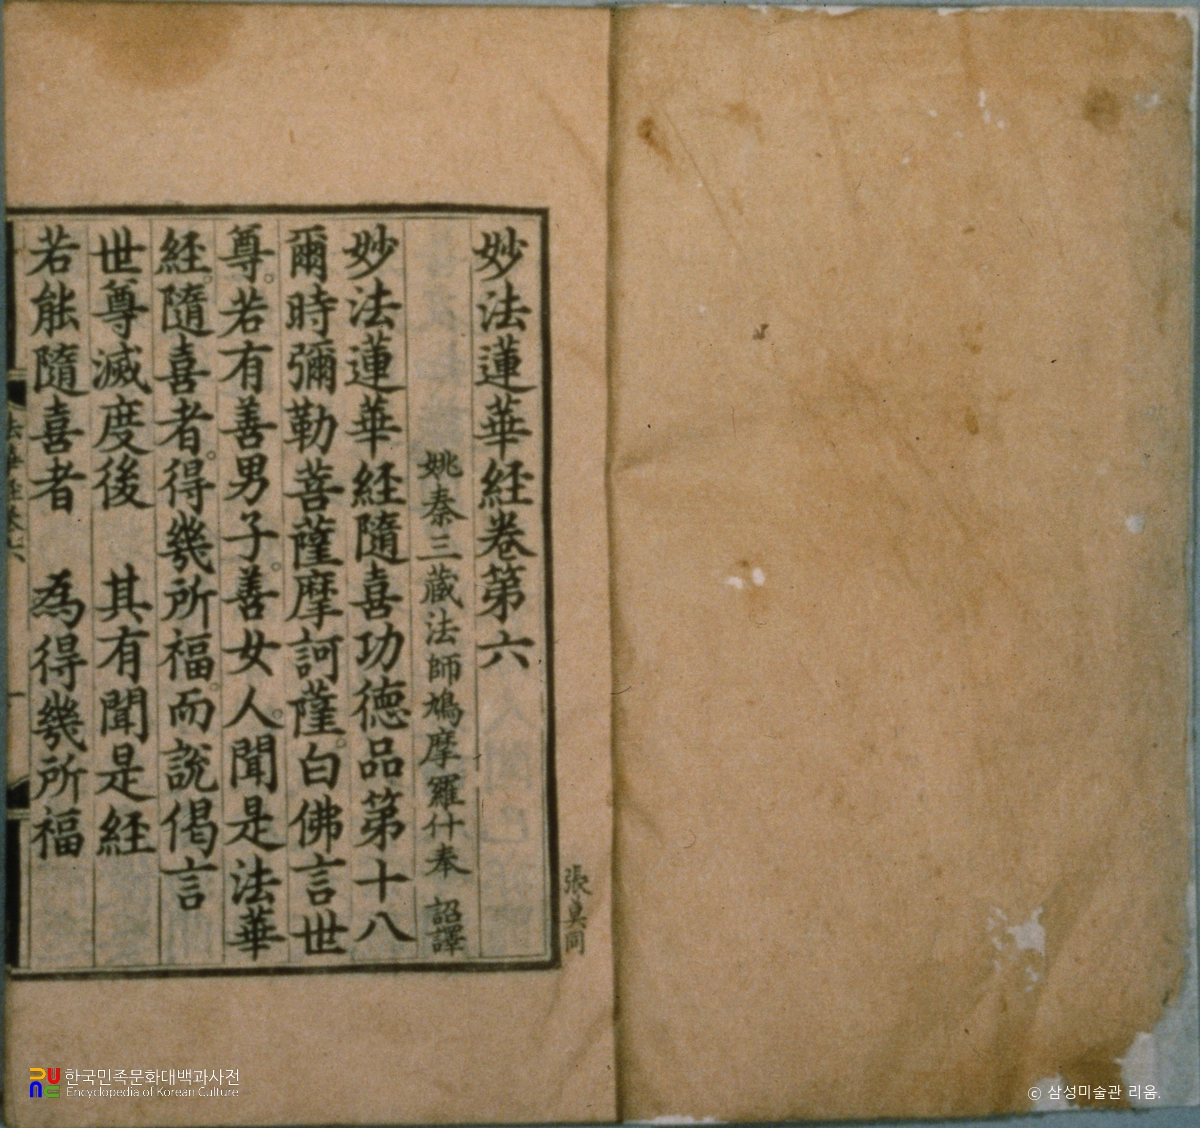 妙法蓮華経卷第六
姚秦三藏法師鳩摩羅什奉 詔譯
妙法蓮華経隨喜功德品第十八
爾時彌勒菩薩摩訶薩。白佛言世
尊。若有善男子。善女人。聞是法華
経。隨喜者。得幾所福。而說偈言
世尊滅度後 其有聞是経
若能隨喜者 為得幾所福
한국민족문화대백과사전
Encyclopedia of Korean Culture
© 삼성미술관 리움.